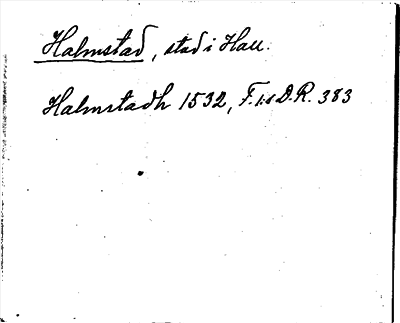 Halmstad, stad i Hall.
Halmstadh 1532, F.1:s D.R. 383